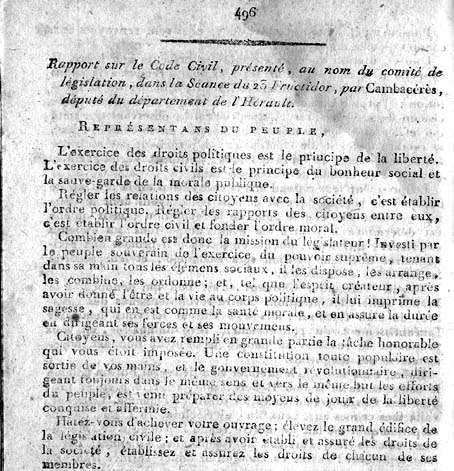 496
Rapport sur le Code Civil, présenté, au nom du comité de
législation, dans la Séance du 23 Fructidor, par Cambacérès,
député du département de l'Hérault.
REPRÉSENTANS DU PEUPLE,
L'exercice des droits politiques est le principe de la liberté.
L'exercice des droits civils est le principe du bonheur social et
la sauve-garde de la morale publique.
Régler les relations des citoyens avec la société, c'est établir
l'ordre politique. Régler les rapports des citoyens entre eux,
c'est établir l'ordre civil et fonder l'ordre moral.
Combien grande est donc la mission du législateur! Investi par
le peuple souverain de l'exercice du pouvoir suprême, tenant
dans sa main tous les élémens sociaux, il les dispose, les arrange,
les combine, les ordonne; et, tel que l'esprit créateur, après
avoir donné l'être et la vie au corps politique, il lui imprime la
sagesse, qui en est comme la santé morale, et en assure la durée
en dirigeant ses forces et ses mouvemens.
Citoyens, vous avez rempli en grande partie la tâche honorable
qui vous étoit imposée. Une constitution toute populaire est
sortie de vos mains, et le gouvernement révolutionnaire, diri-
geant toujours dans le même sens et vers le même but les efforts
du peuple, est venu préparer des moyens de jouir de la liberté
conquise et affermie.
Hatez-vous d'achever votre ouvrage; élevez le grand édifice de
la législation civile; et après avoir établi et assuré les droits de
la société, établissez et assurez les droits de chacun de ses
membres.